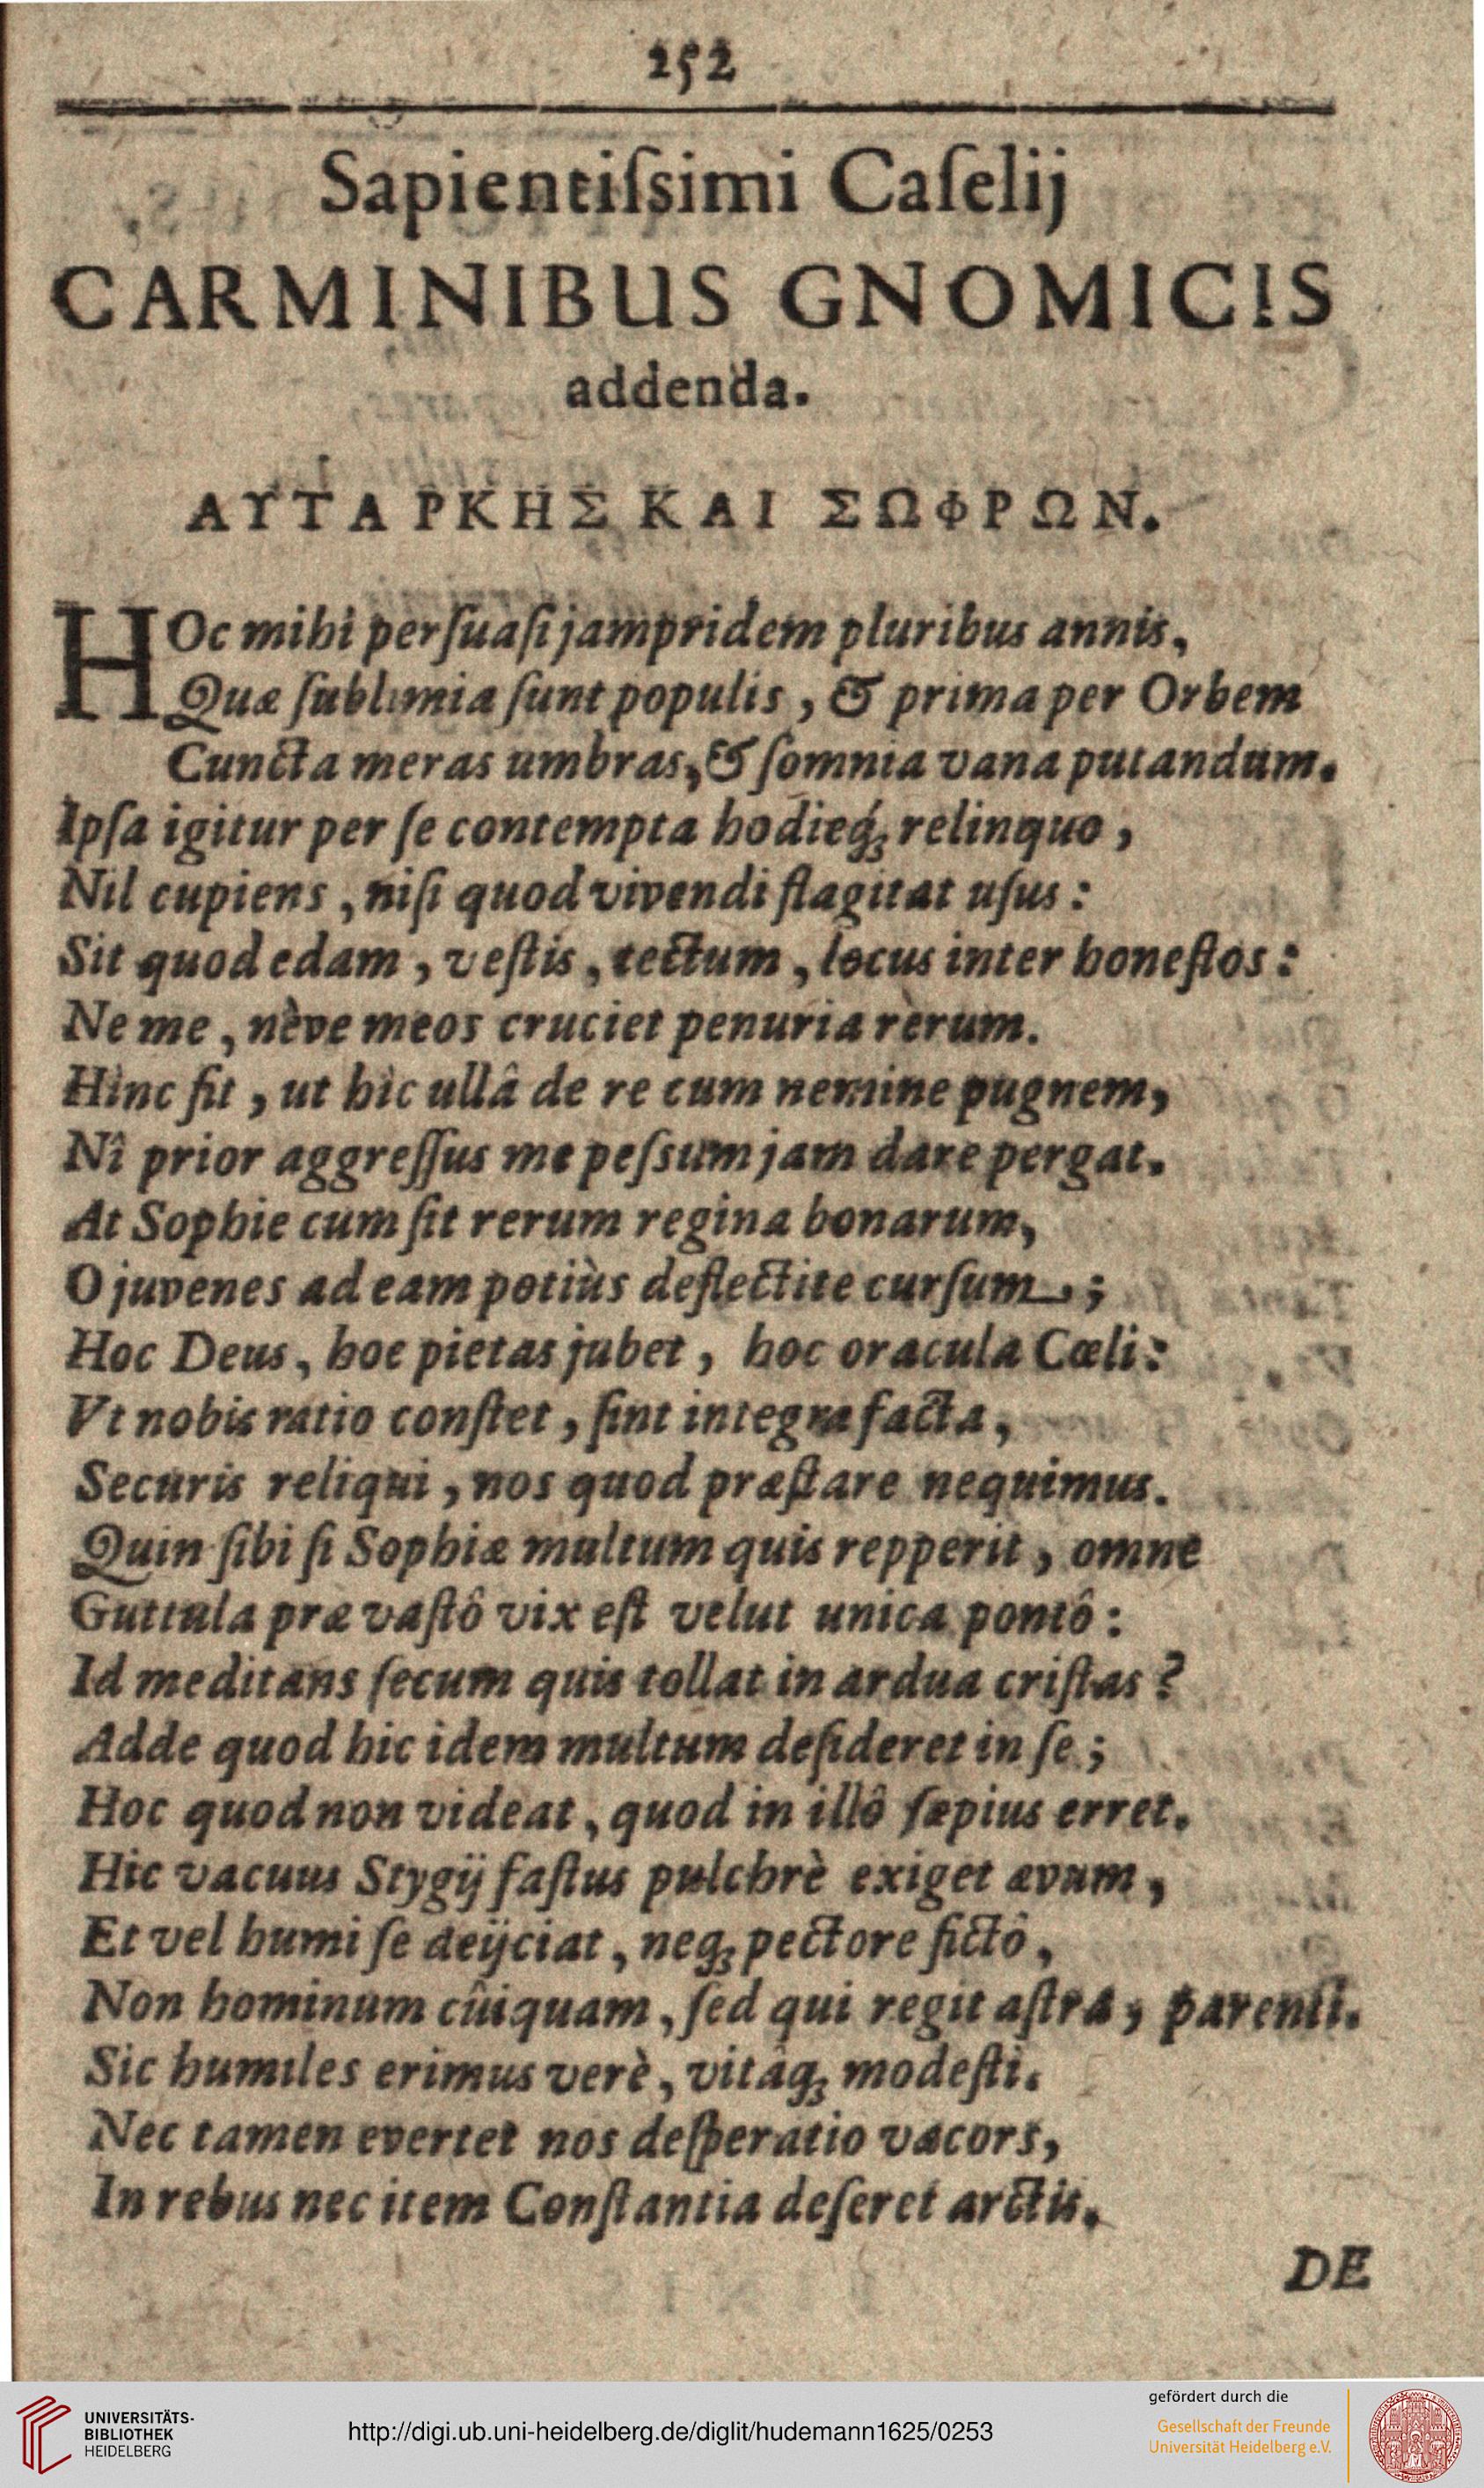 252
Sapientiſsimi Caſelij
CARMINIBUS GNOMICIS
addenda.
ΑΥΤΑΡΚΗΣ ΚΑΙ ΣΩΦΡΩΝ.
HOc mihi perſuaſi jampridem pluribus annis,
Quæ ſublimia ſunt populis, & prima per Orbem
Cuncta meras umbras, & ſomnia vana putandum.
Ipſa igitur per ſe contempta hodieq́ꝫ relinquo,
Nil cupiens, niſi quod vivendi flagitat uſus:
Sit quod edam, veſtis, tectum, locus inter honeſtos:
Ne me, nève meos cruciet penuria rèrum.
Hinc fit, ut hìc ullâ de re cum nemine pugnem,
Nî prior aggreſſus me peſsum jam dare pergat.
At Sophie cum ſit rerum regina bonarum,
O juvenes ad eam potiùs deflectite curſum;
Hoc Deus, hoc pietas jubet, hoc oracula Cœli:
Vt nobis ratio conſtet, ſint integra facta,
Securis reliqui, nos quod præſtare nequimus.
Quin ſibi ſi Sophiæ multum quis repperit, omne
Guttula præ vaſtô vix eſt velut unica pontô:
Id meditans ſecum quis tollat in ardua criſtas?
Adde quod hic idem multum deſideret in ſe;
Hoc quod non videat, quod in illô ſæpius erret.
Hic vacuus Stygij faſtus pulchrè exiget ævum,
Et vel humi ſe deijciat, neqꝫ pectore fictô,
Non hominum cûiquam, ſed qui regit aſtra, parenti.
Sic humiles erimus verè, vitâqꝫ modeſti.
Nec tamen evertet nos deſperatio vacors,
In rebus nec item Conſtantia deſeret arctis.
DE
UNIVERSITÄTS-
BIBLIOTHEK
HEIDELBERG
http://digi.ub.uni-heidelberg.de/diglit/hudemann1625/0253
gefördert durch die
Gesellschaft der Freunde
Universität Heidelberg e.V.